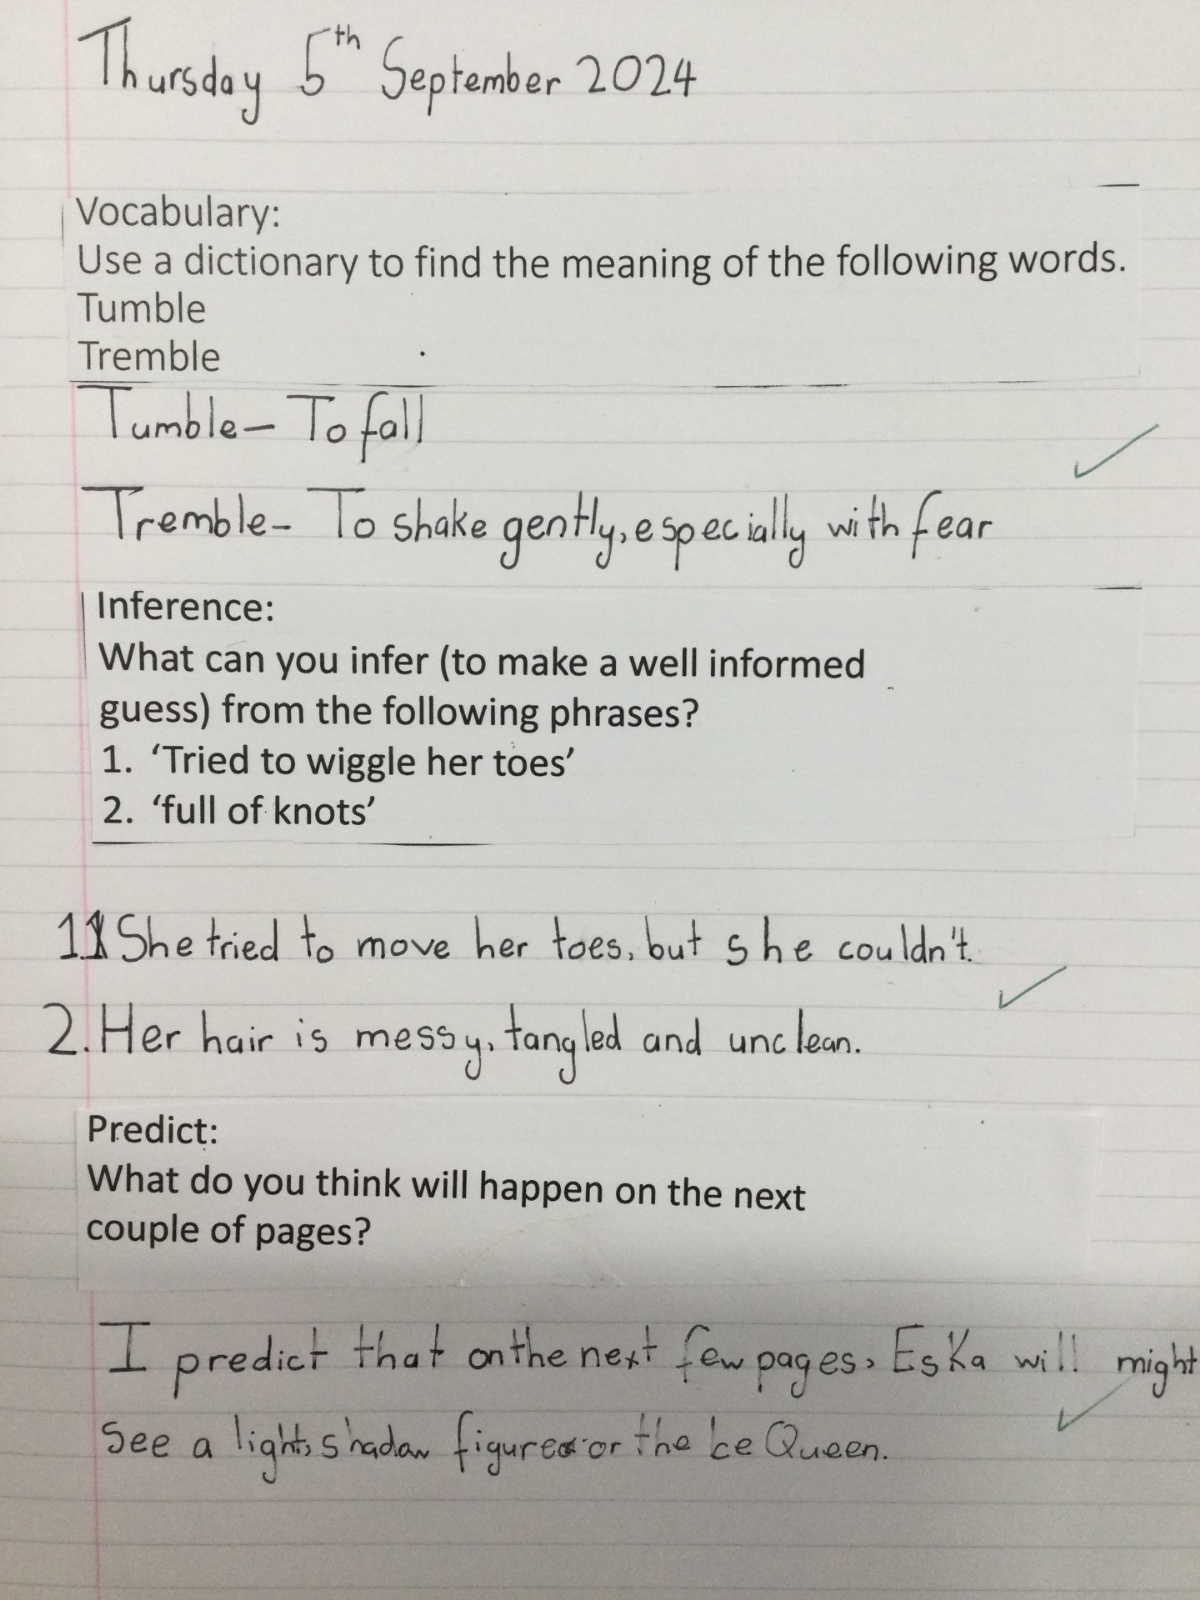 Thursday 5th September 2024
Vocabulary:
Use a dictionary to find the meaning of the following words.
Tumble
Tremble
Tumble- To fall
Tremble- To shake gently, especially with fear
Inference:
What can you infer (to make a well informed
guess) from the following phrases?
1. ‘Tried to wiggle her toes’
2. ‘full of knots’
1. She tried to move her toes, but she couldn't.
2. Her hair is messy, tangled and unclean.
Predict:
What do you think will happen on the next
couple of pages?
I predict that on the next few pages, Eska will might
see a light, shadow figure or the Ice Queen.